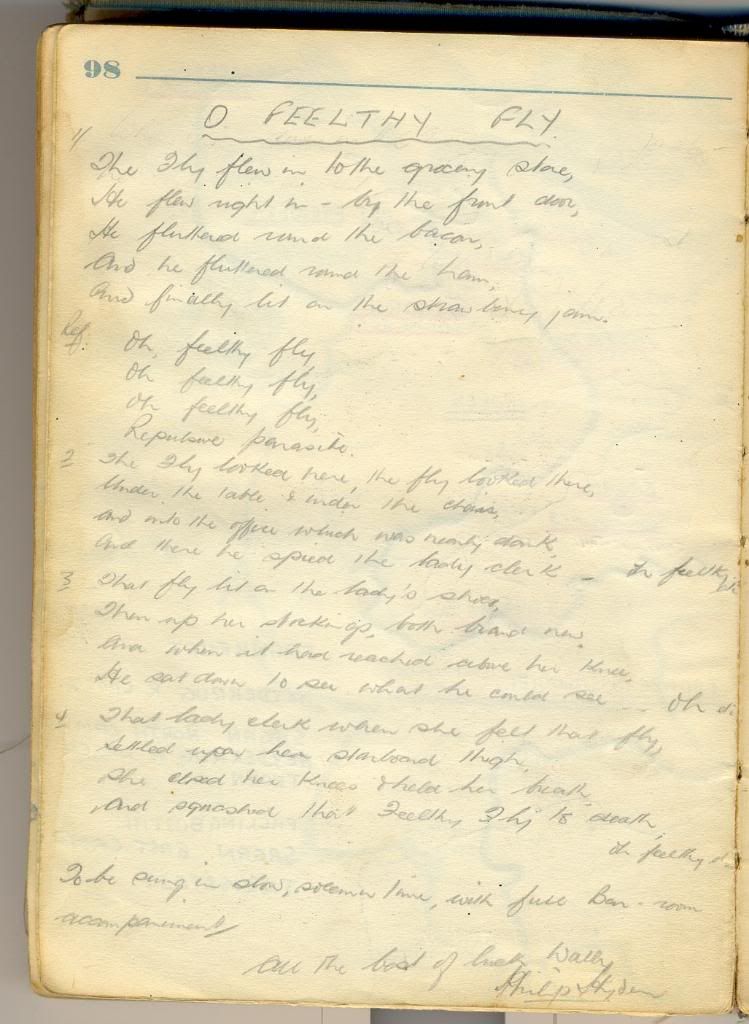 98
O FEELTHY FLY
1/
The Fly flew in to the grocery store,
He flew right in - by the front door,
He fluttered round the bacon,
And he fluttered round the ham,
And finally lit on the strawberry jam.
Ref.
Oh, feelthy fly
Oh feelthy fly,
Oh feelthy fly,
Repulsive parasite.
2 The Fly looked here, the fly looked there,
Under the table & under the chair,
And into the office which was nearly dark,
And there he spied the lady clerk - Oh feelthy
3 That fly lit on the lady's shoes,
Then up her stockings, both brand new,
And when it had reached above her knee,
He sat down to see what he could see - Oh
4 That lady clerk when she felt that fly,
Settled upon her starboard thigh,
She closed her knees & held her breath,
And squashed that Feelthy Fly to death,
Oh feelthy
To be sung in slow, solemn time, with full Bar-room
accompaniment
All the best of luck Wally
Philip Hyden